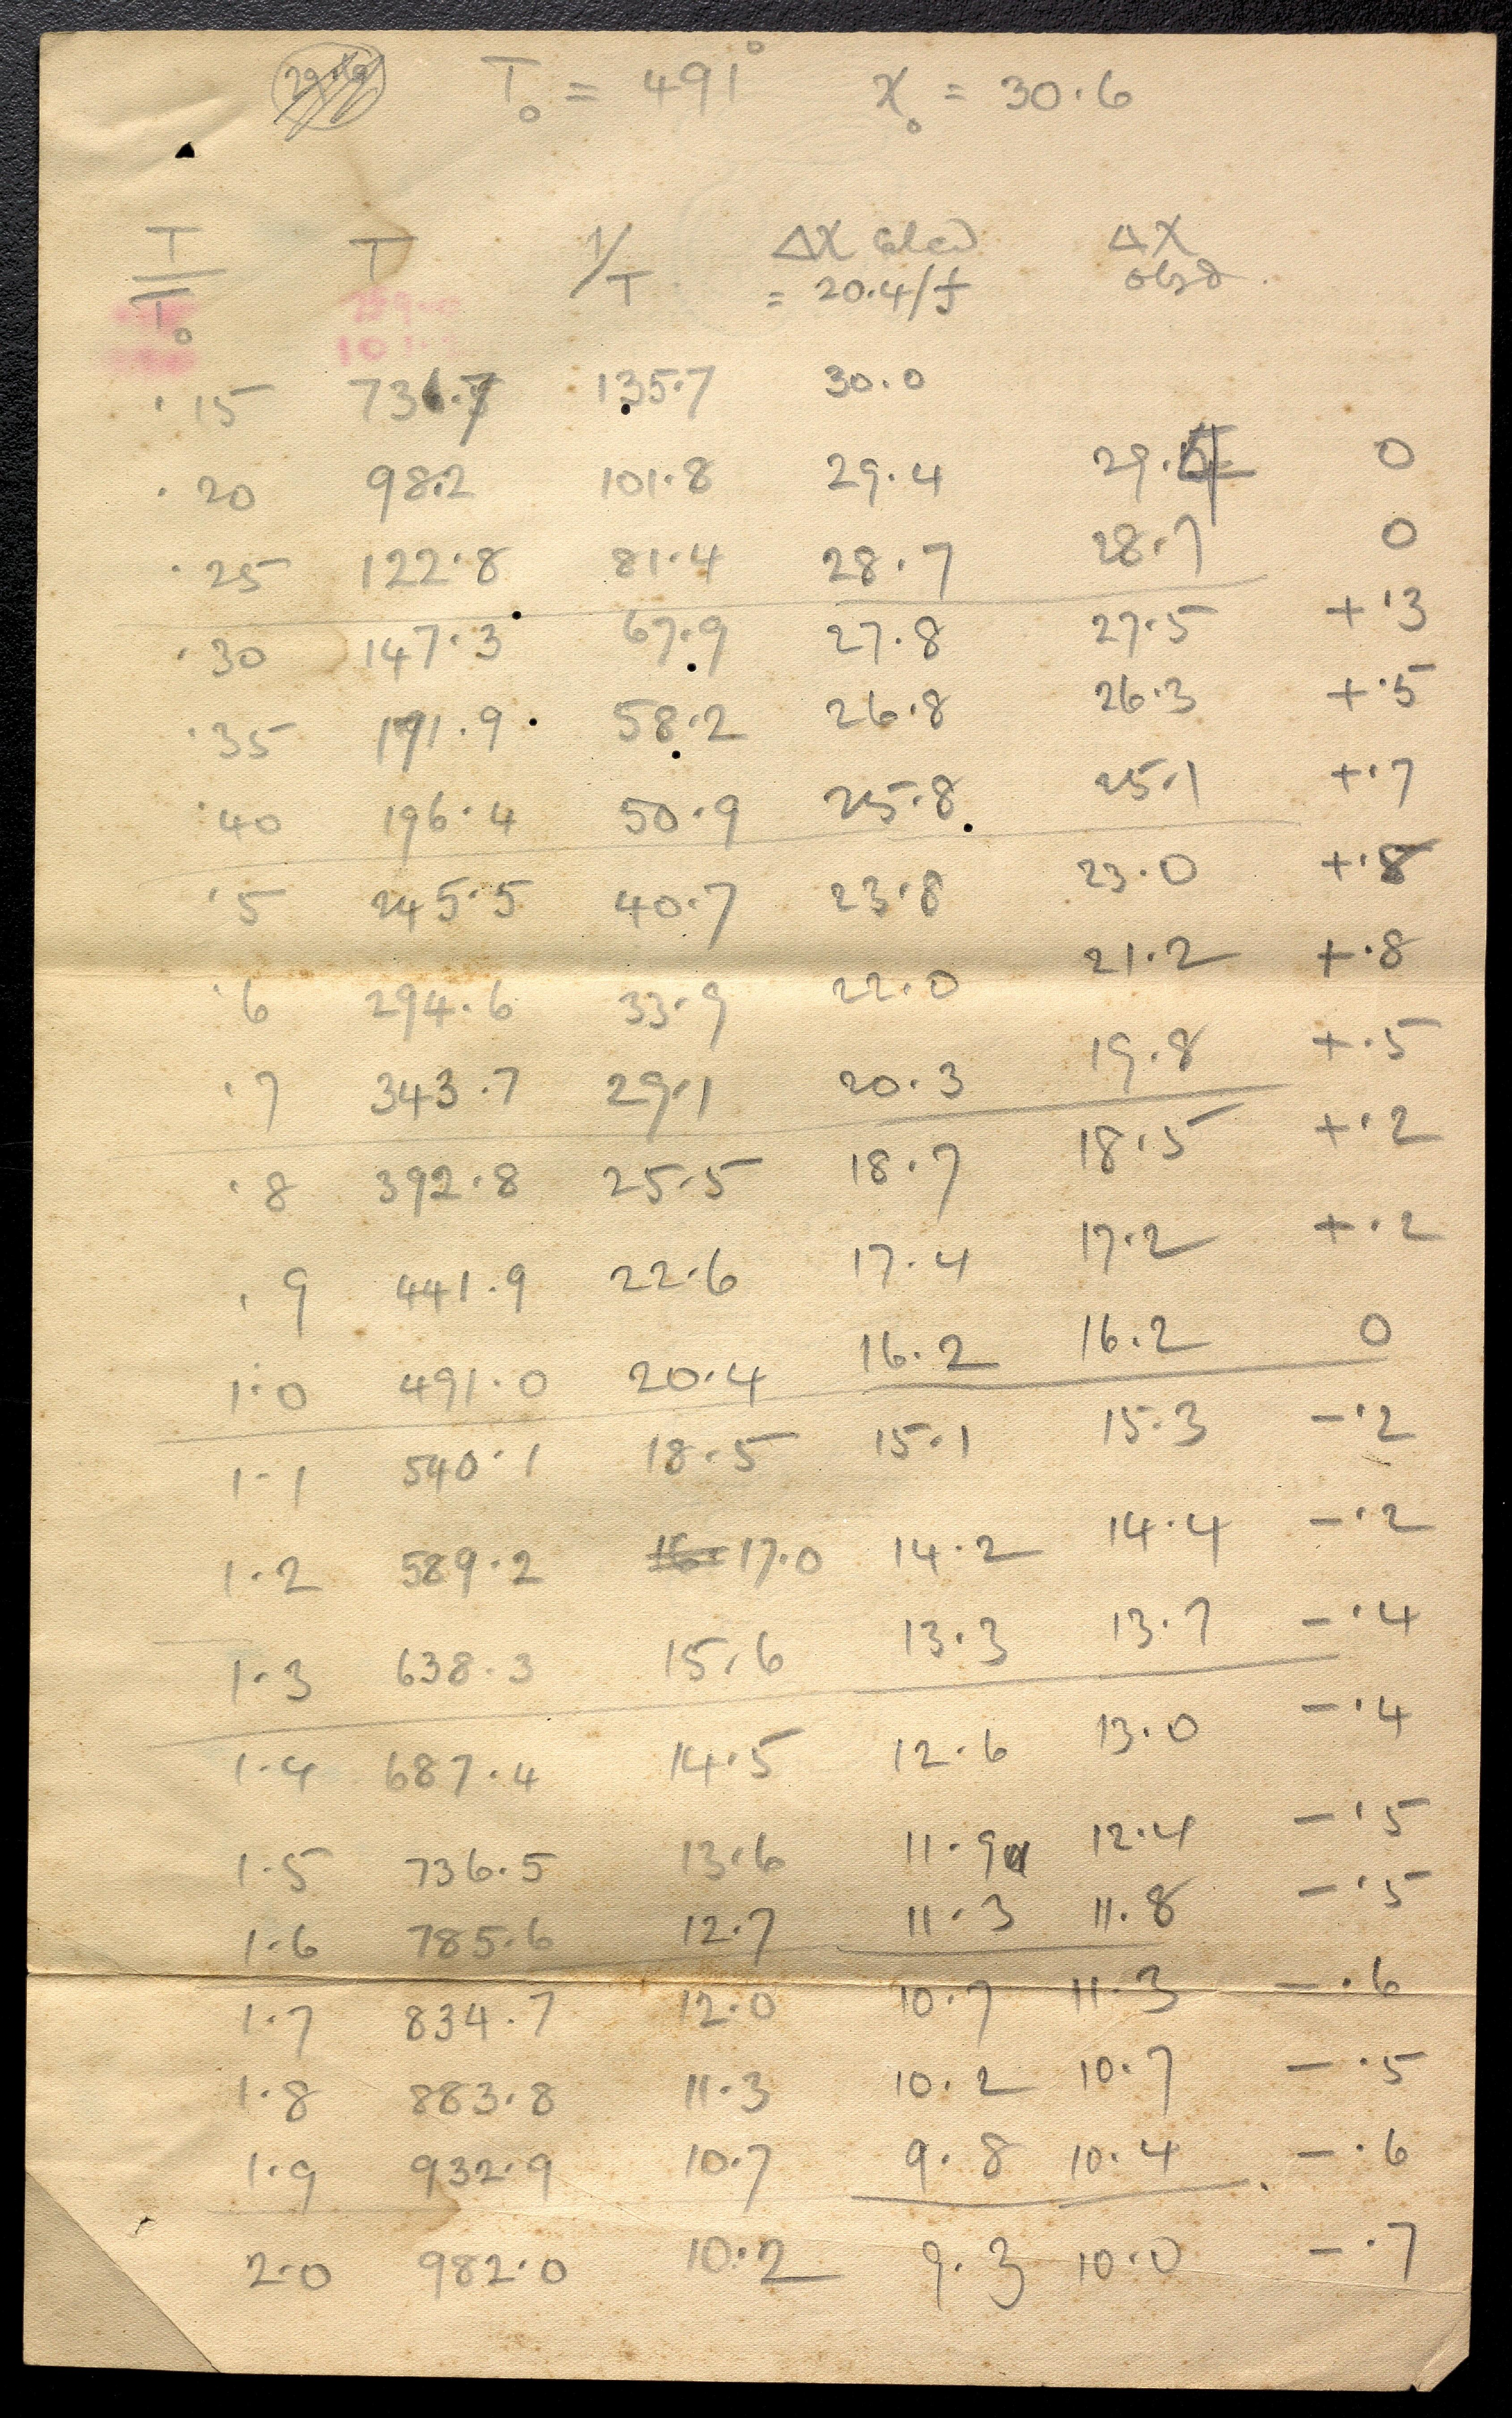 T₀ = 491° χ₀ = 30.6
T/T₀ T 1/T Δχ calcd Δχ
= 20.4/f obsd.
.15 73.7 135.7 30.0
.20 98.2 101.8 29.4 29.4 0
.25 122.8 81.4 28.7 28.7 0
.30 147.3 67.9 27.8 27.5 +.3
.35 171.9 58.2 26.8 26.3 +.5
.40 196.4 50.9 25.8 25.1 +.7
.5 245.5 40.7 23.8 23.0 +.8
.6 294.6 33.9 22.0 21.2 +.8
.7 343.7 29.1 20.3 19.8 +.5
.8 392.8 25.5 18.7 18.5 +.2
.9 441.9 22.6 17.4 17.2 +.2
1.0 491.0 20.4 16.2 16.2 0
1.1 540.1 18.5 15.1 15.3 -.2
1.2 589.2 17.0 14.2 14.4 -.2
1.3 638.3 15.6 13.3 13.7 -.4
1.4 687.4 14.5 12.6 13.0 -.4
1.5 736.5 13.6 11.9 12.4 -.5
1.6 785.6 12.7 11.3 11.8 -.5
1.7 834.7 12.0 10.7 11.3 -.6
1.8 883.8 11.3 10.2 10.7 -.5
1.9 932.9 10.7 9.8 10.4 -.6
2.0 982.0 10.2 9.3 10.0 -.7